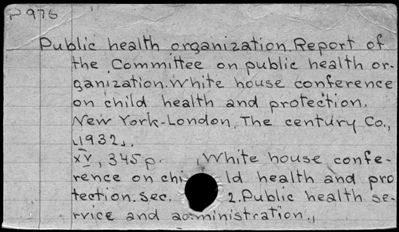 P976
Public health organization. Report of
the Committee on public health or-
ganization. White house conference
on child health and protection.
New York-London, The century Co.,
1932.
xv, 345 p. White house confe-
rence on chi ld health and pro
tection. Sec. 2. Public health se-
rvice and administration.